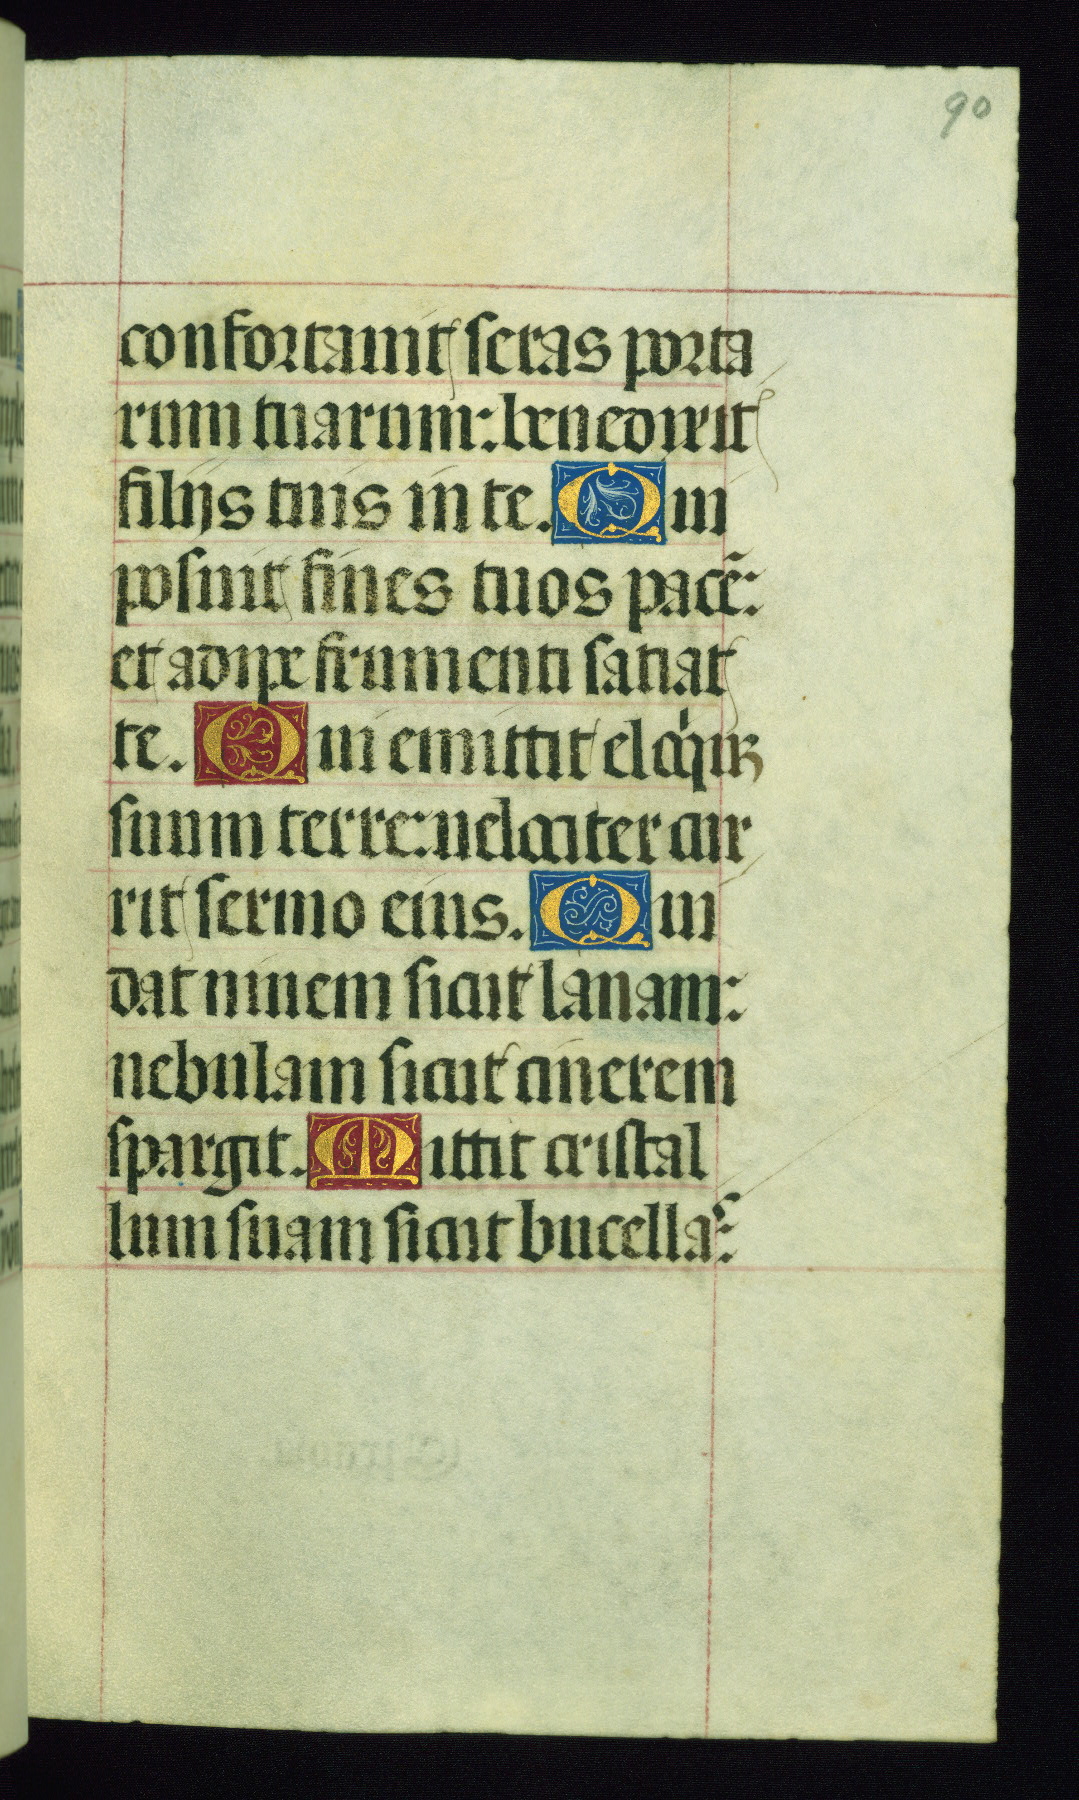 90
confortauit seras porta
rum tuarum: benedixit
filijs tuis in te. Qui
posuit fines tuos pacē:
et adipe frumenti satiat
te. Qui emittit eloq'uꝫ
suum terre: uelociter cur
rit sermo eius. Qui
dat niuem sicut lanam:
nebulam sicut cinerem
spargit. Mittit cristal
lum suam sicut bucellas: